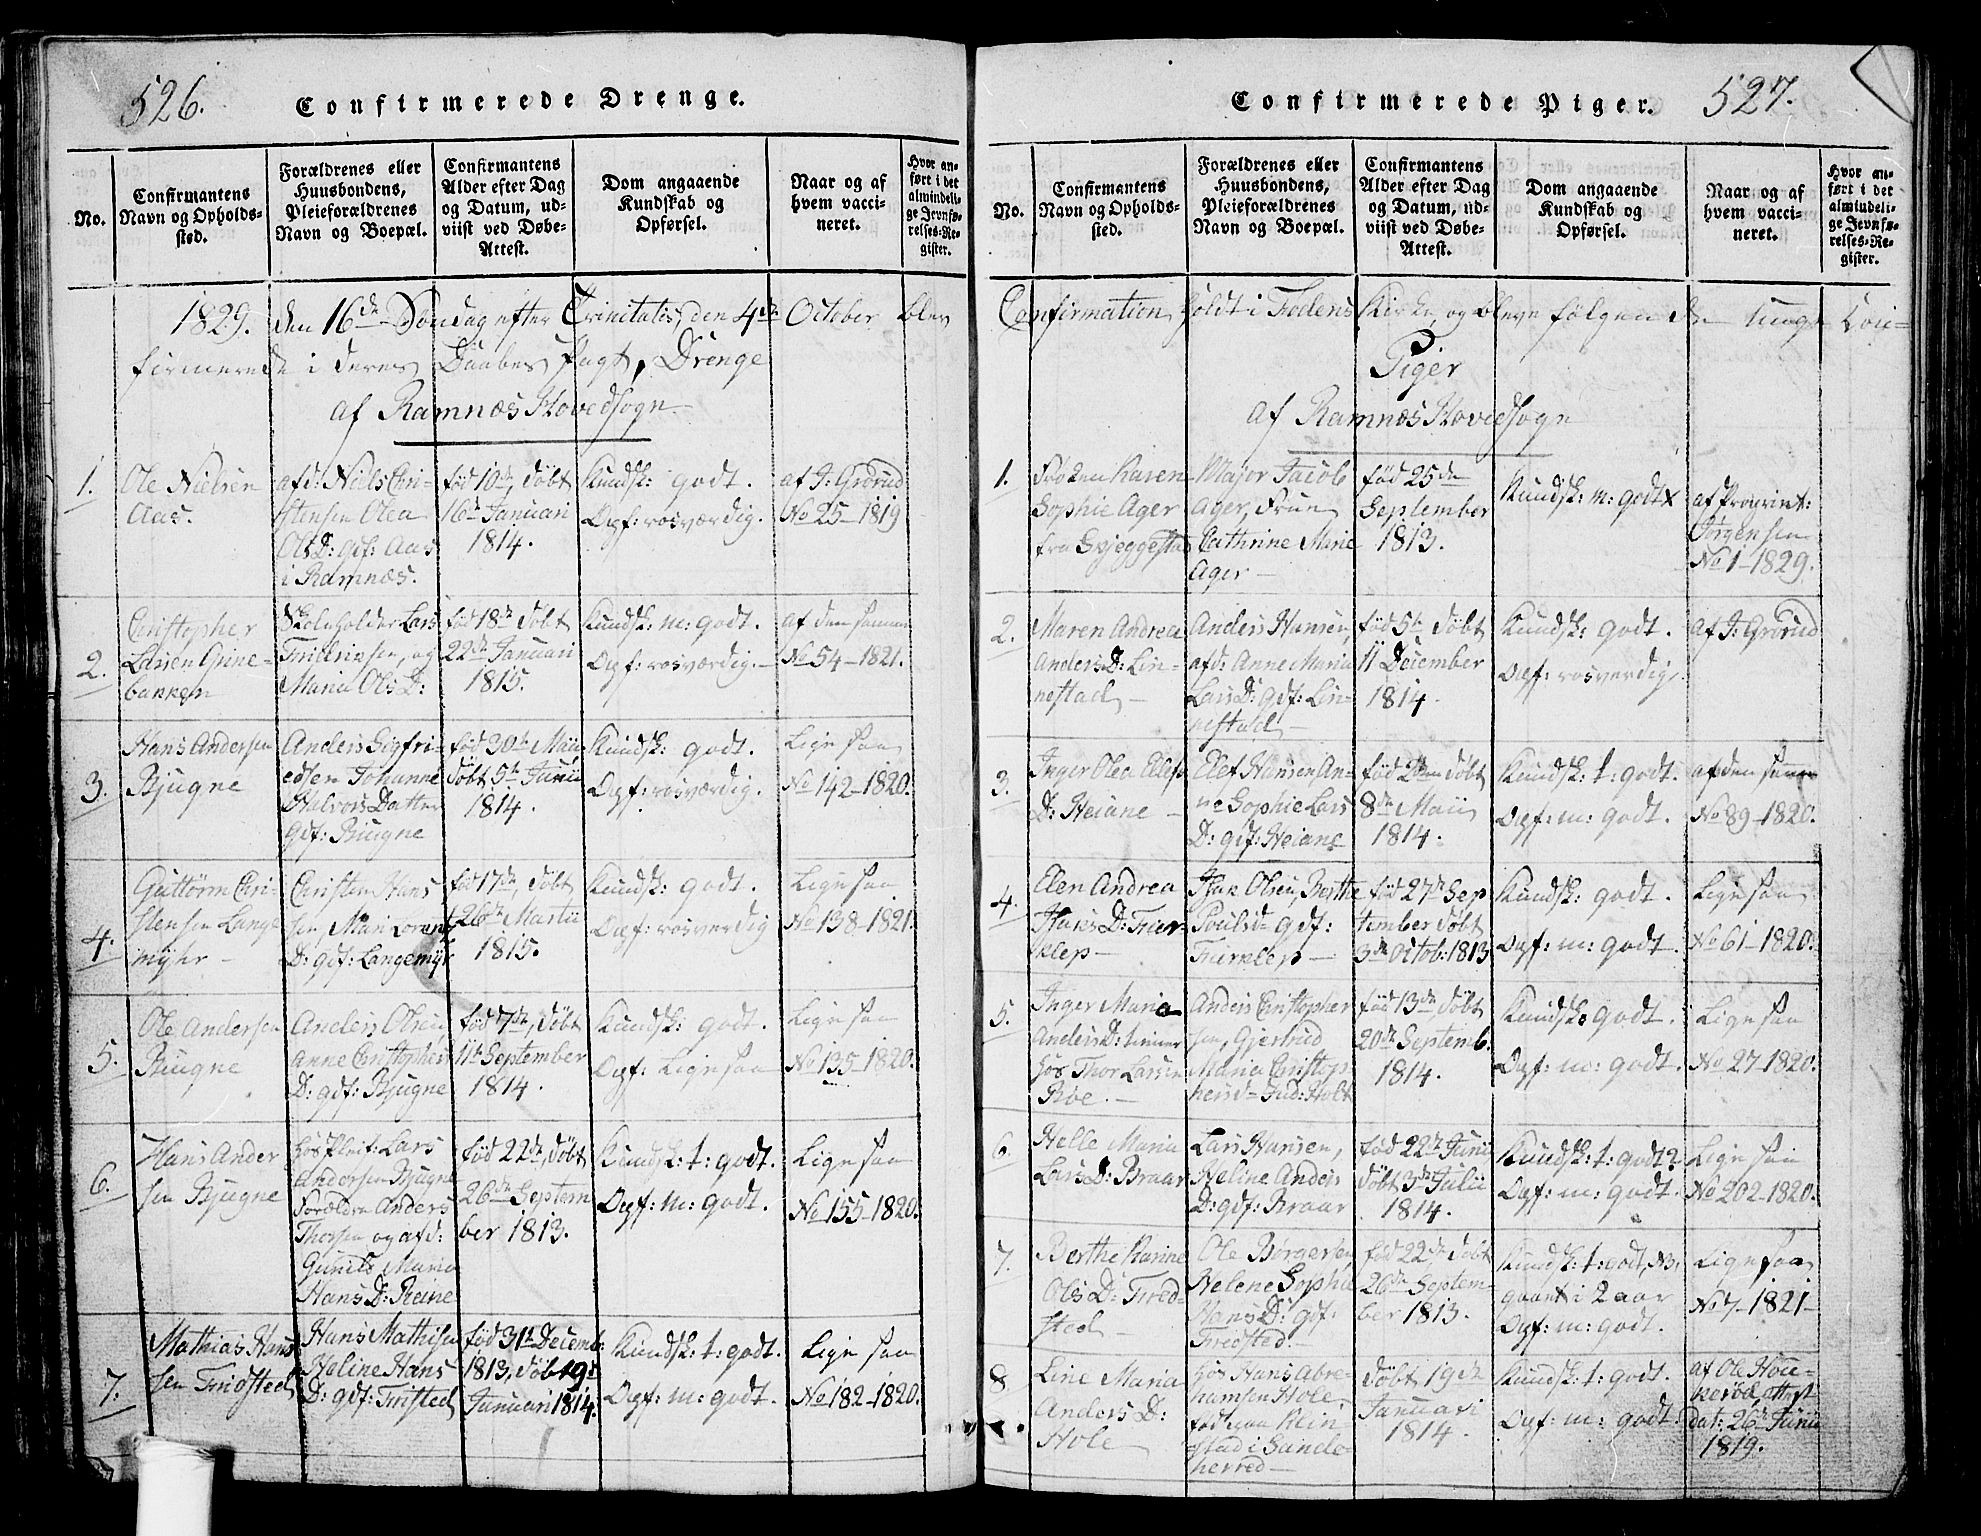 526.
Confirmerede Drenge.
No.
Confirmantens
Navn og Opholds-
sted.
Forældrenes eller
Huusbondens,
Pleieforældrenes
Navn og Boepæl.
Confirmantens
Alder efter Dag
og Datum, ud-
viist ved Døbe-
Attest.
Dom angaaende
Kundskab og
Opførsel.
Naar og af
hvem vacci-
neret.
Hvor an-
ført i det
almindeli-
ge Jevnfø-
relses-Re-
gister.
1829. den 16de Søndag efter Trinitatis, den 4de October blev
firmerede i deres Daabes Pagt, Drenge
af Ramnæs Hovedsogn
1.
Ole Nielsen
Aas.
afd: Niels Chri-
stensen Olea
Ols D: gdf: Aas
i Ramnæs.
fød 10de, døbt
16de Januari
1814.
Kundsk: godt.
Opf: rosværdig.
af J: Grorud
No 25-1819
2.
Christopher
Larsen Grine-
bakken
Skoleholder Lars
Fridrixsen, og
Maria Ols D:
fød 18de døbt
22de Januari
1815.
Kundsk: m: godt.
Opf: rosværdig.
af den samme
No 54-1821.
3.
Hans Andersen
Bjugne
Anders Sigfri-
edsen Johanne
Halvors Datter
gdf: Biugne
fød 30te Maii
døbt 5te Junii
1814.
Kundsk: godt.
Opf: rosværdig.
Lige saa
No 142-1820.
4.
Guttorm Chri-
stensen Lange
myhr
Christen Hans
sen, Mari Lorentz
D: gdf: Langemyr
fød 17de, døbt
26de Martii
1815.
Kundsk: godt.
Opf: rosverdig
Lige saa
No 138-1821.
5.
Ole Andersen
Biugne
Anders Olsen
Anne Christophers
D: gdf: Bjugne
fød 7de, døbt
11te September
1814.
Kundsk: godt.
Opf: Lige saa
Lige saa
No 135-1820.
6.
Hans Ander
sen Bjugne
hos Pleief: Lars
Andersen Bjugne
Forældre Anders
Thorsen og afd:
Gunild Maria
Hans D: Reine
fød 22de, døbt
26de Septem
ber 1813.
Kundsk: t: godt.
Opf: m: godt.
Lige saa
No 155-1820.
7.
Mathias Hans
sen Fridsted
Hans Mathisen
Heline Hans
D: gdf: Fristed
fød 31te Decemb:
1813, døbt 19de
Januari 1814.
Kundsk: t: godt.
Opf: m: godt.
Lige saa
No 182-1820.
Confirmerede Piger.
527.
No.
Confirmantens
Navn og Opholds-
sted.
Forældrenes eller
Huusbondens,
Pleieforældrenes
Navn og Boepæl.
Confirmantens
Alder efter Dag
og Datum, ud-
viist ved Døbe-
Attest.
Dom angaaende
Kundskab og
Opførsel.
Naar og af
hvem vacci-
neret.
Hvor an-
ført i det
almindeli-
ge Jevnfø-
relses-Re-
gister.
Confirmation holdt i Fodens Kirke, og bleve følgende unge Con-
Piger
af Ramnæs Hovedsogn
1.
Frøken Karen
Sophie Ager
fra Skjeggestad
Major Jacob
Ager, Frue
Cathrine Marie
Ager
fød 25de
September
1813.
Kundsk: m: godt
Jørgensen
No 1-1829.
2.
Maren Andrea
Anders D: Lin-
nestad
Anders Hansen,
afd: Anne Maria
Lars D: gdf: Lin-
nestad
fød 5te døbt
11 December
1814.
Kundsk: godt.
Opf: rosverdig.
af J: Grorud
3.
Inger Olea Elefs
D: Heiane
Elef Hansen An-
ne Sophie Lars
D: gdf: Heiane
fød 2den døbt
8de Maii
1814.
Kundsk: t: godt.
Opf: m: godt.
af den samme
No 89-1820.
4.
Elen Andrea
Isaks D: Fuer-
klep
Isak Olsen, Berthe
Pouls D: gdf:
Fuerklep
fød 27de Sep
tember døbt
3de Octob: 1813
Kundsk: godt.
Opf: m: godt.
Lige saa
No 61-1820.
5.
Inger Maria
Anders D: tiener
hos Thor Larsen
Røe.
Anders Christopher
sen, Gjertrud
Maria Christop
hers D: Hud: Holt
fød 13de døbt
20de Septemb.
1814.
Kundsk: godt.
Opf: m: godt.
Lige saa
No 27-1820.
6.
Helle Maria
Lars D: Braar
Lars Hansen,
Heline Anders
D: gdf: Braar
fød 22de Junii
døbt 3de Julii
1814.
Kundsk: t: godt
Opf: m: godt.
Lige saa
No 202-1820.
7.
Berthe Karine
Ols D: Fred-
sted
Ole Børgersen
Helene Sophie
Hans D: gdf.
Fredsted.
fød 22de døbt
26de Septem-
ber 1813.
Kundsk: t: godt, NB.
gaaet i 2 aar
Opf: m: godt.
Lige saa
No 7-1821
8
Line Maria
Anders D:
Hole
hos Hans Abra-
hamsen Hole,
stad i Sande-
herred
døbt 19de
Januari
1814.
Kundsk: t: godt.
Opf: m: godt.
af Ole Hou-
kerød, attest
dat: 26de Junii
1819.